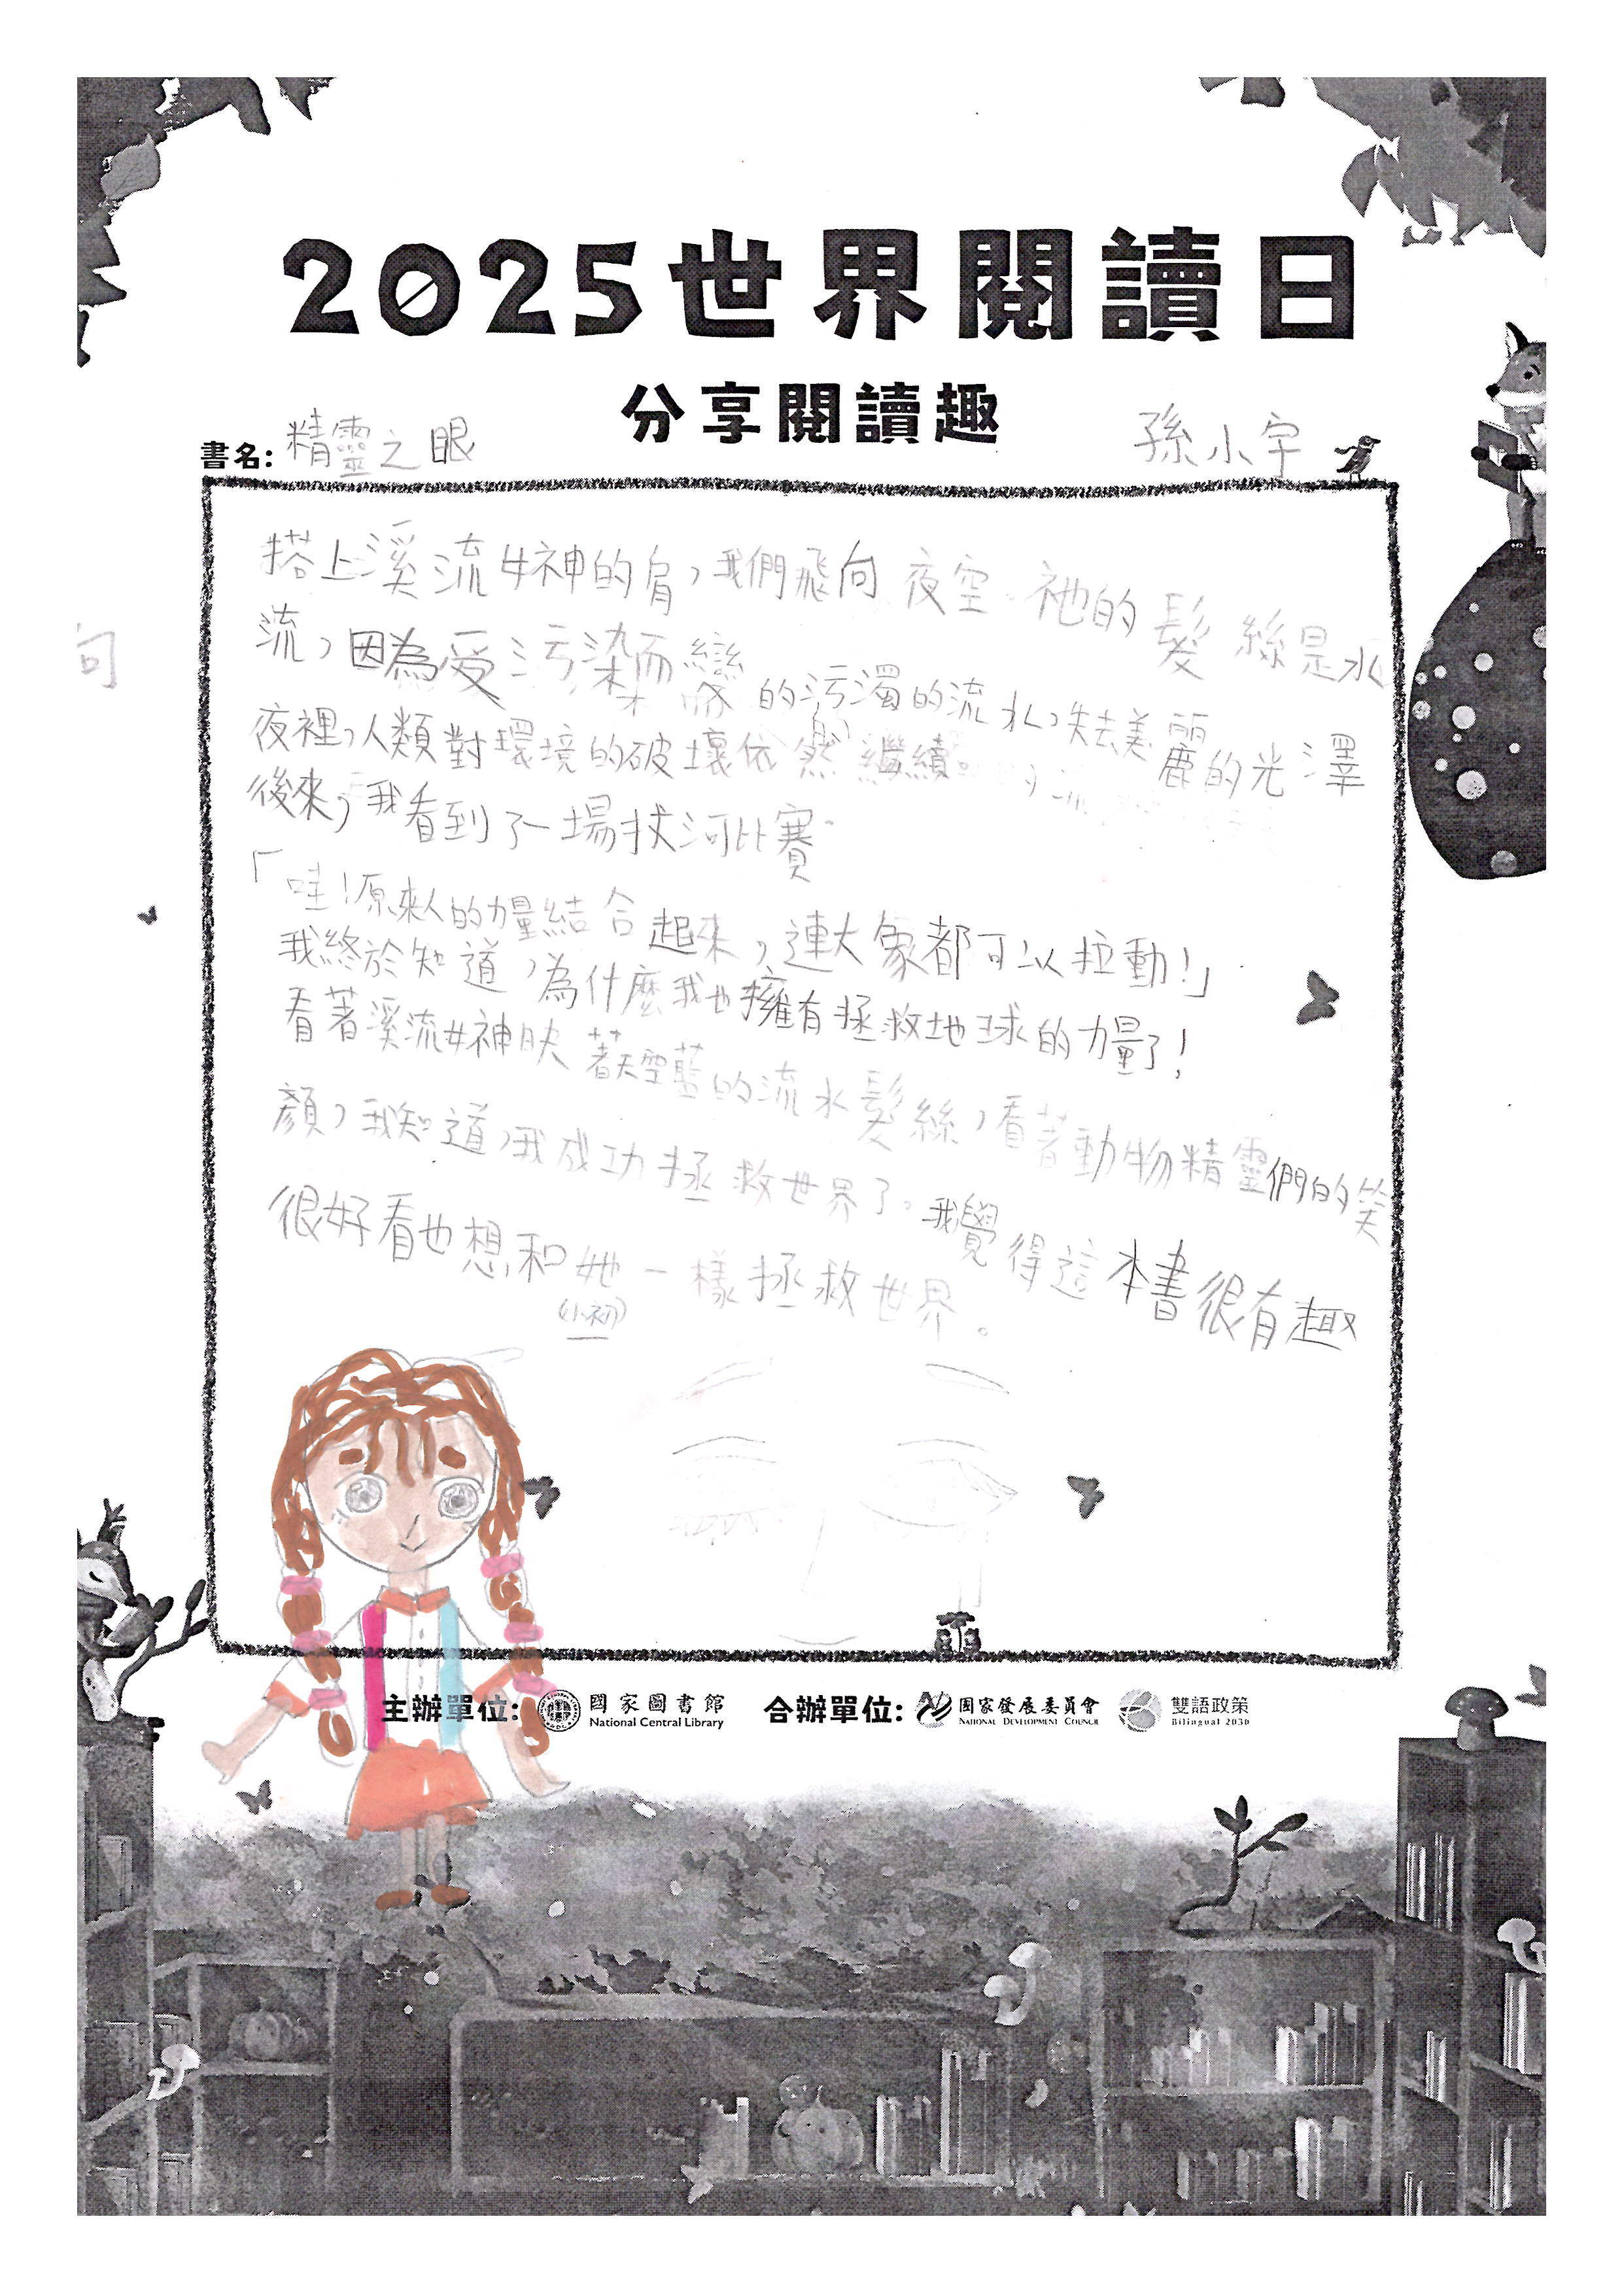 2025世界閱讀日
分享閱讀趣
書名: 精靈之眼
孫小宇
搭上溪流女神的肩，我們飛向夜空。祂的髮絲是水
流，因為受污染而變的污濁的流水，失去美麗的光澤
夜裡，人類對環境的破壞依然繼續
後來，我看到了一場拔河比賽。
「哇！原來人的力量結合起來，連大象都可以拉動！」
我終於知道，為什麼我也擁有拯救地球的力量了！
看著溪流女神映著天空藍的流水髮絲，看著動物精靈們的笑
顏，我知道，我成功拯救世界了。我覺得這本書很有趣
很好看也想和她一樣拯救世界。
(小初)
句
主辦單位: 國家圖書館 National Central Library 合辦單位: 國家發展委員會 NATIONAL DEVELOPMENT COUNCIL 雙語政策 Bilingual 2030